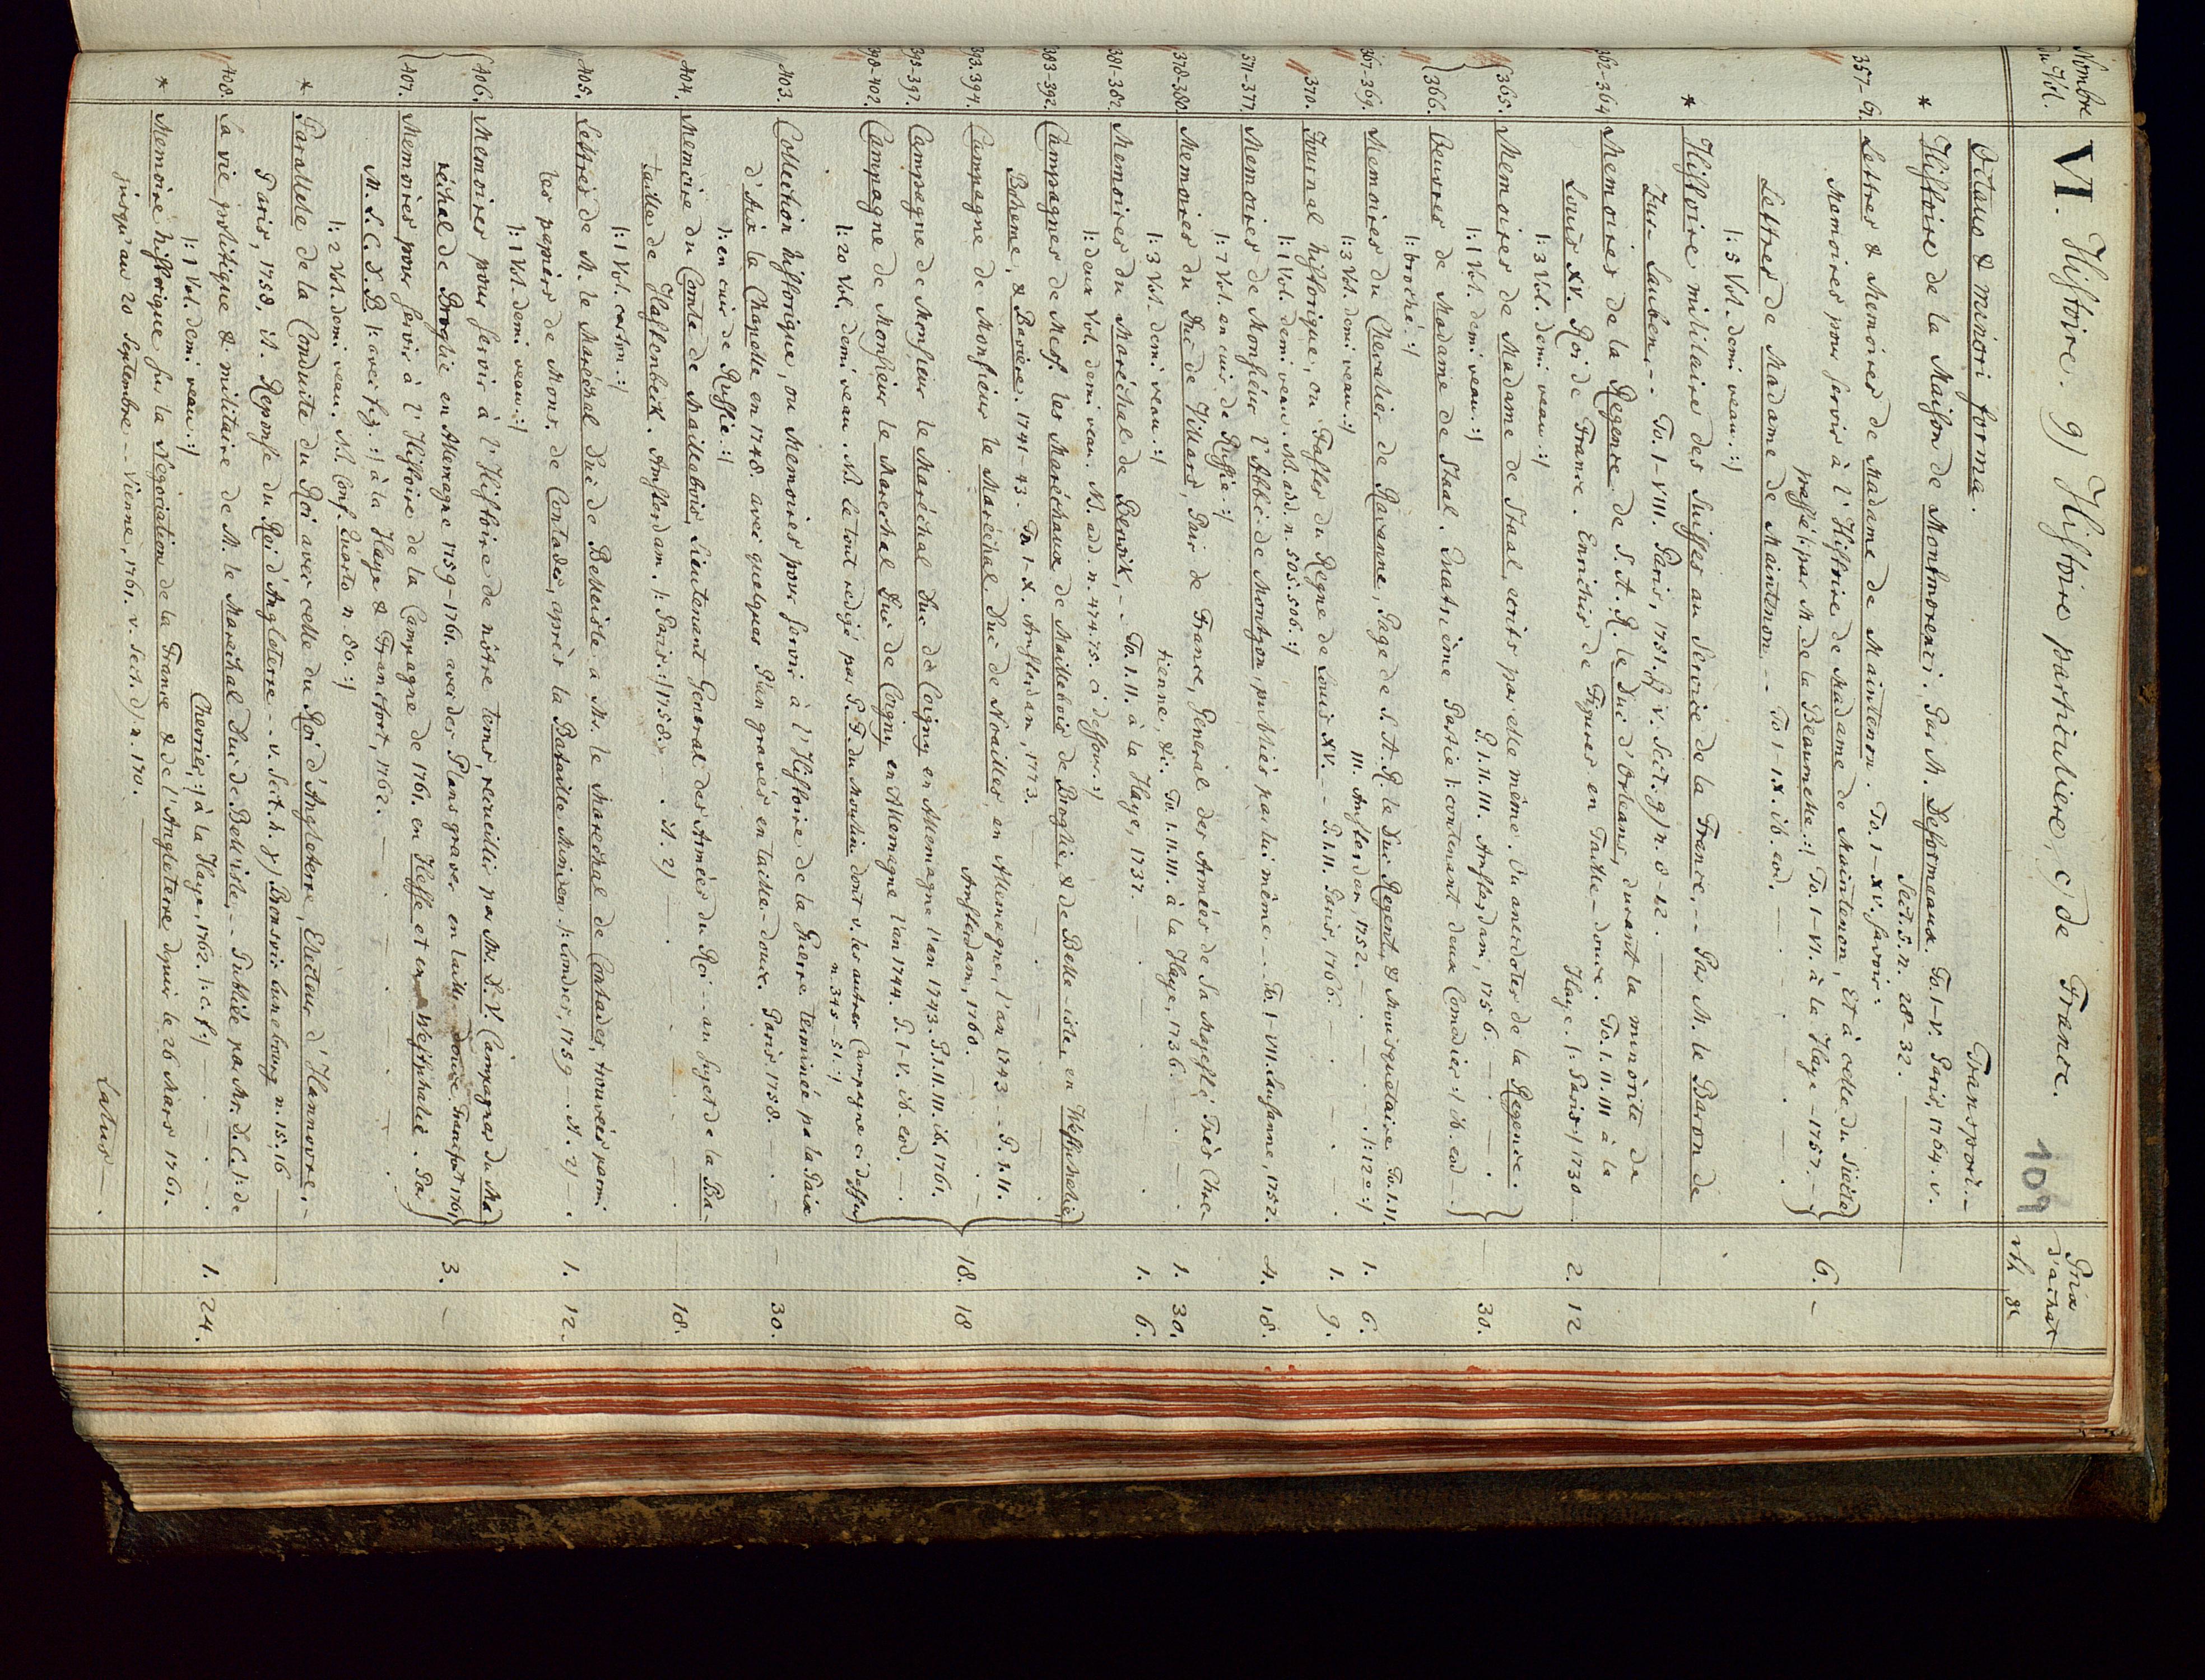 Nombre VI. Histoire. g) Histoire particuliere, c) de France. 109 Prix
du Vol. d'achat
rth gl
Octavo & minori forma. Transport. –
* Histoire de la Maison de Montmorenci. Par M. Desormeaux. To. I–V. Paris, 1764. v.
Sect. 5. n. 28–32.
357–61. Lettres & Memoires de Madame de Maintenon. To. I–XV. savoir:
Memoires pour servir à l'Histoire de Madame de Maintenon, Et à celle du Siècle
passé |: par M. de la Beaumelle :| To. I–VI. à la Haye 1757. – 6. –
Lettres de Madame de Maintenon -- To I–IX. ib. eod.
|: 5 Vol. demi veau :|
* Histoire militaire des Suisses au Service de la France, -- Par M. le Baron de
Zur-Lauben, -- To. I–VIII. Paris, 1751. sq v. Sect. g) n. 8–12.
362–364 Memoires de la Regence de S. A. R. le Duc d'Orleans, durant la minorité de
Louis XV. Roi de France. Enrichis de Figures en Taille-douce. To. I. II. III à la
Haye. |: Paris :| 1730 – 2. 12
|: 3 Vol. demi veau :|
365. Memoires de Madame de Staal, ecrits par elle même. Ou anecdotes de la Regence.
P. I. II. III. Amsterdam, 1756. – 30.
|: 1 Vol. demi veau :|
366. Oeuvres de Madame de Staal. Quatrième Partie |: contenant deux Comedies :| ib. eod –
|: broché :|
367–369. Memoires du Chevalier de Ravanne, Page de S. A. R. le Duc Regent, & Mousquetaire To. I. II.
III. Amsterdam, 1752. |: 12° :| 1. 6.
|: 3 Vol. demi veau :|
370. Journal historique, ou Fastes du Regne de Louis XV. -- P. I. II. Paris, 1766. 1. 9.
|: 1 Vol. demi veau. NB. add. n. 505. 506. :|
371–377. Memoires de Monsieur l'Abbé de Montgon, publiés par lui même -- To. I–VII. Lausanne, 1752. 4. 18.
|: 7 Vol. en cuir de Russie :|
378–380. Memoires du Duc de Villars, Pair de France, General des Armées de Sa Majesté Très Chre-
tienne, &c. To. I. II. III. à la Haye, 1736. 1. 30.
|: 3 Vol. demi veau :|
381–382. Memoires du Maréchal de Berwik, -- To. I. II. à la Haye, 1737. 1. 6.
|: deux Vol. demi veau. NB. add. n. 474. 75. ci dessous. :|
383–392. Campagnes de Mess. les Maréchaux de Maillebois, de Broglie, & de Belle-isle, en Westphalie,
Boheme, & Baviere. 1741–43. To. I–X. Amsterdam, 1773.
393. 394. Campagne de Monsieur le Maréchal Duc de Noailles, en Allemagne, l'an 1743 -- P. I. II.
Amsterdam, 1760. 18. 18
393–397. Campagne de Monsieur le Maréchal Duc de Coigny en Allemagne l'an 1743. P. I. II. III. ib. 1761.
398–402. Campagne de Monsieur le Marechal Duc de Coigny en Allemagne l'an 1744. P. I–V. ib. eod. –
|: 20 Vol. demi veau. NB. Le tout redigé par P. F. du Moulin dont v. les autres Campagnes ci dessus
n. 345–51. :|
403. Collection historique, ou Memoires pour servir à l'Histoire de la Guerre terminée par la Paix
d'Aix la Chapelle en 1748. avec quelques Plan gravés en taille-douce. Paris, 1758. 30.
|: en cuir de Russie :|
404. Memoire du Comte de Maillebois, Lieutenant General des Armées du Roi -- au sujet de la Ba-
taille de Hastenbeck. Amsterdam. |: Paris :| 1758. 18.
|: 1 Vol. carton :|
405. Lettres de M. le Maréchal Duc de Belleisle à Mr. le Marechal de Contades, trouvées parmi
les papiers de Mons. de Contades, après la Bataille Minden. |: Londres, 1759 1. 12.
|: 1 Vol. demi veau :|
406. Memoires pour servir à l'Histoire de nôtre tems, recueillis par Mr. L. V. |: Campagnes du Ma-
réchal de Broglie en Allemagne 1759–1761. avec des Plans graves en taille douce. Francfort 1761, 3. –
407. Memoires pour servir à l'Histoire de la Campagne de 1761. en Hesse et en Westphalie. Par
M. L. C. D. B. |: avec fig. :| à la Haye & Francfort, 1762.
|: 2 Vol. demi veau. NB. Conf. Quarto n. 80. :|
* Parallele de la Conduite du Roi avec celle du Roi d'Angleterre, Electeur d'Hannovre, -
Paris, 1758. it. Reponse du Roi d'Angleterre -- v. Sect. h. γ) Bronsvic Lunebourg n. 15. 16
408. La vie politique & militaire de M. le Maréchal Duc de Bell'isle. -- Publiée par Mr. D. C. |: de
Chevrier, :| à la Haye, 1762. |: c. f. :| 1. 24.
|: 1 Vol. demi veau :|
* Memoire historique sur la Négociation de la France & de l'Angleterre depuis le 26 Mars 1761.
jusqu'au 20 Septembre -- Vienne, 1761. v. Sect. d) n. 170.
Latus – .